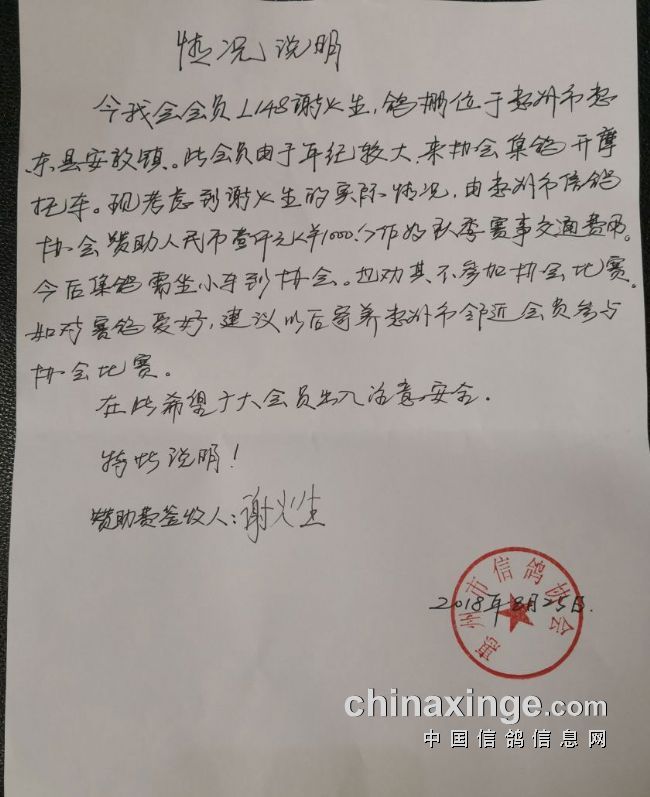 情况说明
今我会会员L148谢火生,鸽棚位于惠州市惠
东县安敦镇。此会员由于年纪较大、来协会集鸽开摩
托车。现考虑到谢火生的实际情况,由惠州市信鸽
协会赞助人民币壹仟元(¥1000.)作好秋季赛事交通费用。
今后集鸽需坐小车到协会。也劝其不参加协会比赛。
如对赛鸽爱好,建议以后寄养惠州市邻近会员参与
协会比赛。
在此希望广大会员出入注意安全.
特此说明!
赞助费签收人:谢火生
惠州市信鸽协会
2018年8月25日.
chinaxinge.com
中国信鸽信息网